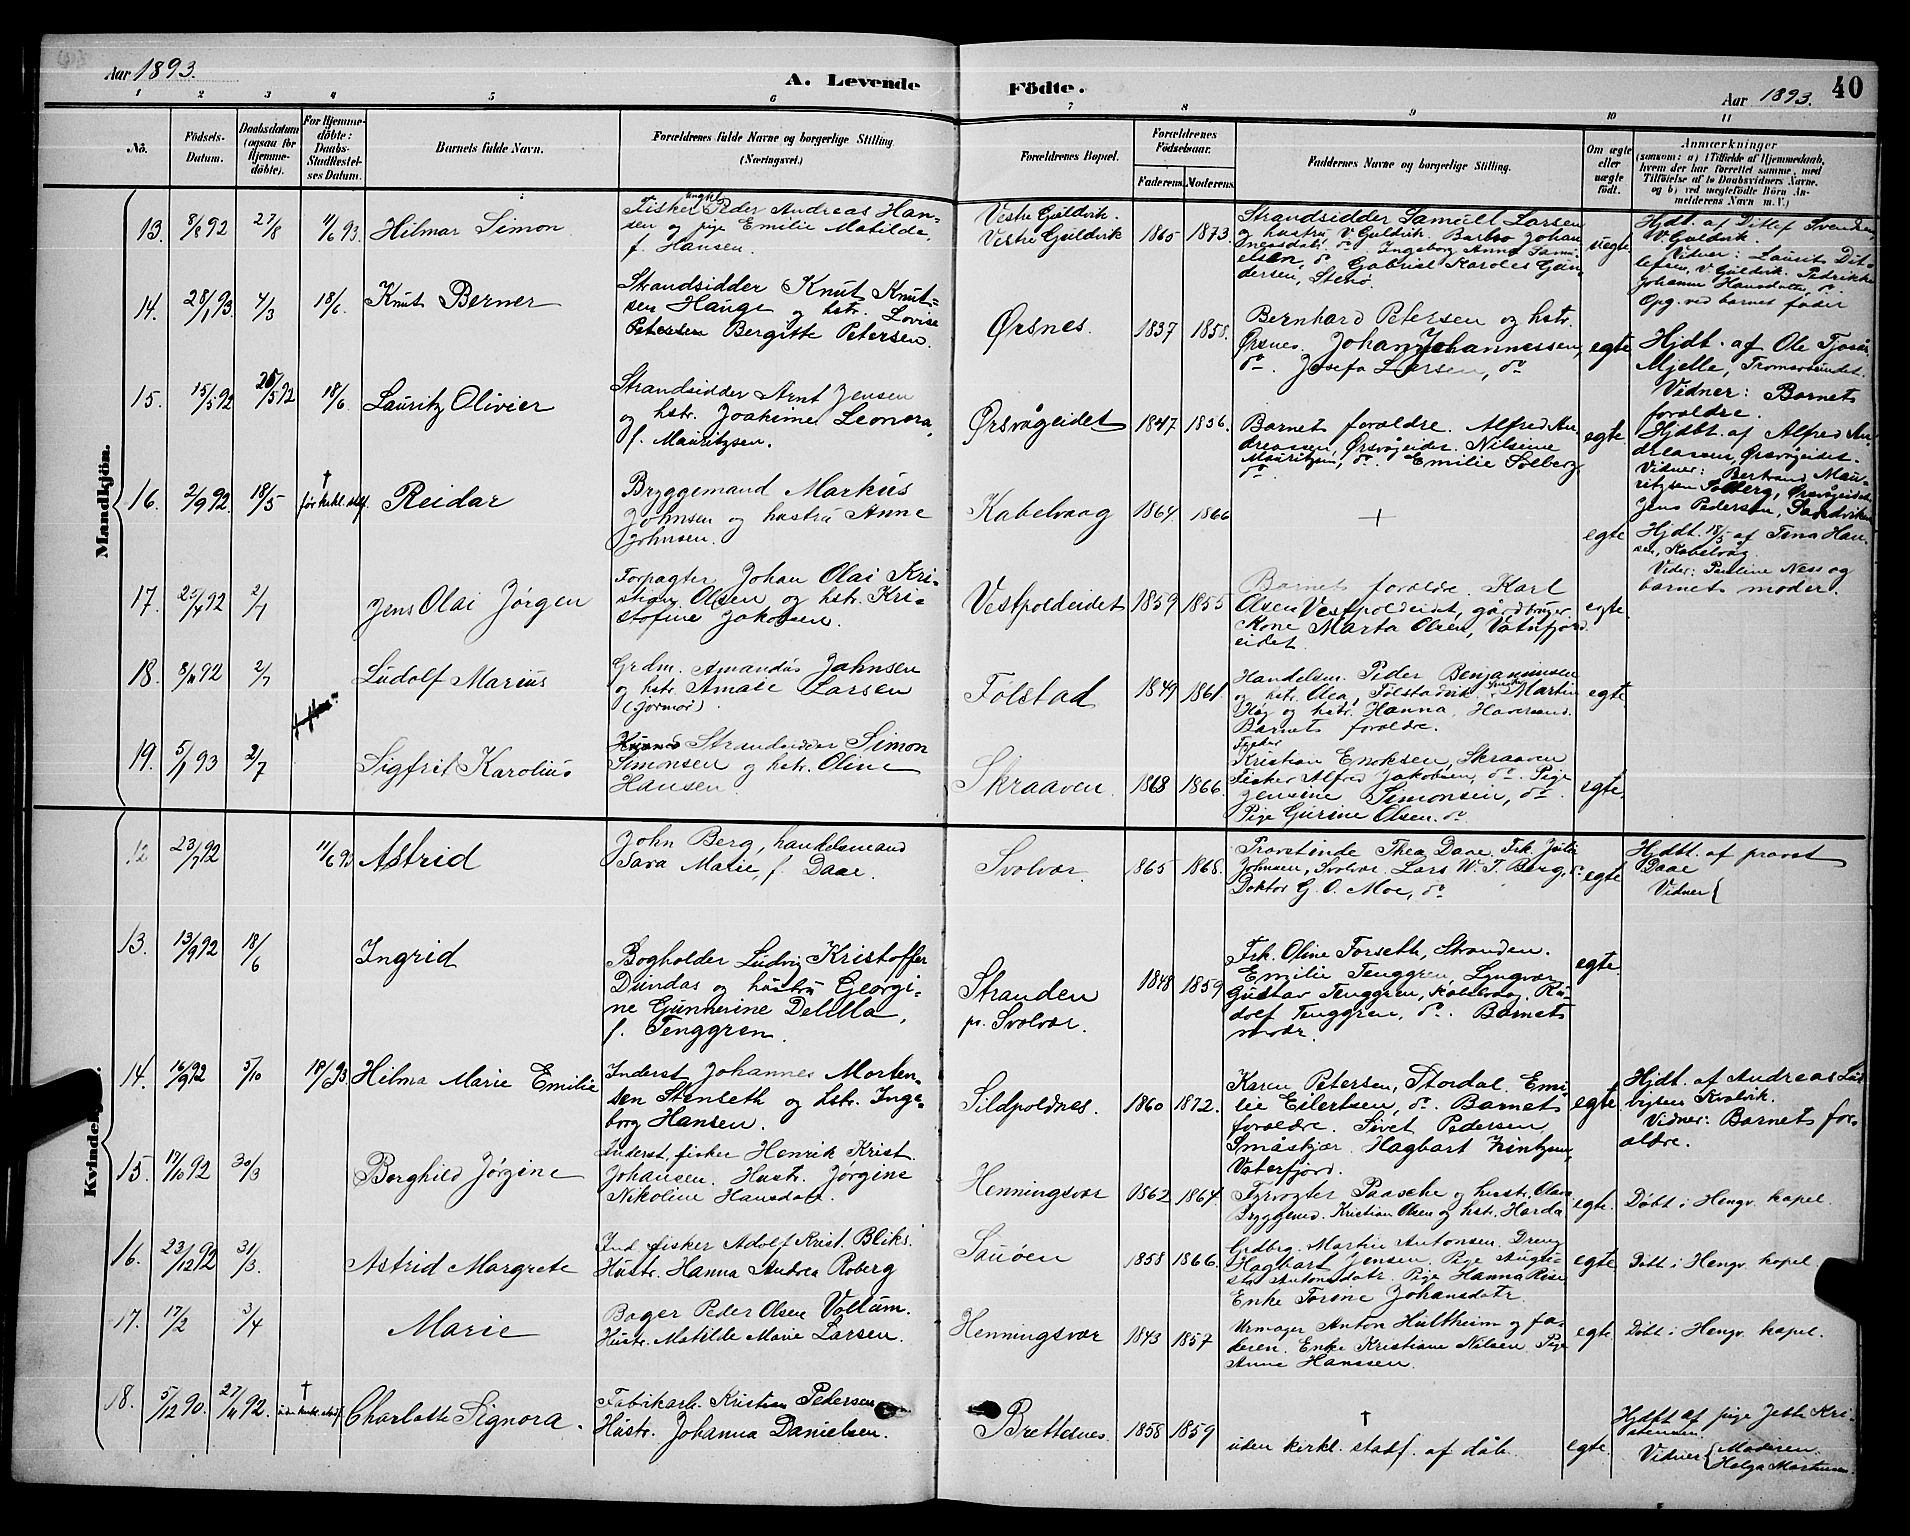 Aar 1893.
A. Levende Födte.
Aar 1893.
40
1 2 3 4 5 6 7 8 9 10 11
No.
Födsels-Datum.
Daabsdatum (ogsaa for Hjemme-döbte).
For Hjemme-döbte: Daabs-Stadfæstel-ses Datum.
Barnets fulde Navn.
Forældrenes fulde Navne og borgerlige Stilling. (Næringsvei.)
Forældrenes Bopæl.
Forældrenes Födselsaar.
Faderens. Moderens.
Faddernes Navne og borgerlige Stilling.
Om ægte eller uægte födt.
Anmærkninger
(saasom: a) i Tilfælde af Hjemmedaab, hvem der har forrettet samme, med Tilföielse af to Daabsvidners Navne, og b) ved uegtefödte Börn An-melderens Navn m. V.)
Mandkjön.
13. 8/8 92 27/8 11/6 93 Hilmar Simon
Fisker Ungkl. Peder Andreas Han-
sen og pige Emilie Matilde,
f. Hansen.
Vestre Guldvik.
Vestre Guldvik 1865 1873.
Strandsidder Samuel Larsen
og hustru V. Guldvik. Barbro Johan
nesdatr. do Ingeborg Anna Samu-
elsen, do Gabriel Karoles Gun-
dersen, Stenø.
uegte
Hjdt. af Ditlef Svendsen,
V. Guldvik.
Vidner: Laurits Dit-
lefsen, V. Guldvik. Pedrikke
Johanne Hansdatter, do.
Opg. ved barnets fader
14. 28/1 93. 4/3 18/6. Knut Berner
Strandsidder Knut Knut-
sen Hauge og hstr. Lovise
Petersen Bergitte Petersen.
Ørsnes. 1837 1858.
Bernhard Petersen og hstr.
Ørsnes. Johan Johannessen,
do. Josefa Larsen, do
egte
Hjdt. af Ole Tjosås
Mjelle, Tromsøsundet.
Vidner: Barnets
forældre.
15. 15/5 92 26/5 92 18/6. Lauritz Olivier
Strandsidder Arnt Jensen
og hstr. Joakime Leonora,
f. Mauritzsen.
Ørsvågeidet 1847 1856.
Barnets forældre. Alfred An-
dreassen, Ørsvågeidet. Nilsine
Mauritzen, do. Emilie Solberg
do.
egte.
Hjdbt. af Alfred An-
dreassen, Ørsvågeidet.
Vidner: Bertrand Mau-
ritzsen Solberg, Ørsvågeidet
Jens Pedersen, Sandviken
16. 2/9 92. 18/5 † før kirkl. stdf. Reidar
Bryggemand Markus
Johnsen og hustru Anne
Johnsen.
Kabelvaag 1864 1866
+
egte
Hjdt. 18/5 af Tina Han-
sen, Kabelvåg.
Vider: Pauline Ness og
barnets moder.
17. 25/4 92 2/7 Jens Olai Jørgen
Forpagter Johan Olai Kri-
stian Olsen og hstr. Kri-
stofine Jakobsen.
Vestpoldeidet 1859 1855
Barnets forældre. Karl
Olsen Vestpoldeidet, gårdbruger
Kone Marta Olsen, Vatnfjord
eidet.
egte.
18. 8/11 92 2/7 Ludolf Marius
Grdm. Amandus Jahnsen
og hstr. Amalie Larsen
(Jormor).
Følstad 1849 1861.
Handelsm. Peder Benjaminsen
og hstr. Olea, Følstadvik. Martin
Høg og hstr. Hanna, Haversand.
Barnets forældre.
egte.
19. 5/1 93 2/7 Sigfrit Karolius
Strandsidder Simon
Simonsen og hstr. Oline
Hansen.
Skraaven. 1868 1866.
Fisker
Kristian Enoksen, Skraaven
Fisker Alfred Jakobsen, do. Pige
Jensine Simonsen, do.
Pige Gurine Olsen. do
egte.
Kvindekjön.
12 23/7 92 11/6 93 Astrid
John Berg, handelsmand
Sara Marie, f. Daae.
Svolvær. 1865 1868.
Provstinde Thea Daae. Frk. Julie
Johnsen, Svolvær. Lars W. T. Berg, do
Doktor G. O. Moe, do
egte
Hjdtt. af provst
Daae
Vidner {
13. 13/9 92 18/6 Ingrid
Bogholder Ludvig Kristoffer
Dundas og hustru Georgi-
ne Gunnerine Delilla,
f. Tenggren.
Stranden
pr. Svolvær. 1848 1859
Frk. Oline Forseth, Stranden.
Emilie Tenggren, Lyngvær
Gustav Tenggren, Kabelvaag. Ru-
dolf Tenggren, do. Barnets
moder.
egte.
14. 16/9 92 5/10 18/6 93 Hilma Marie Emilie
Inderst Johannes Morten-
sen Stenseth og hstr. Inge-
borg Hansen.
Sildpoldnes. 1860 1872.
Karen Petersen, Stordal. Emi-
lie Eilertsen, do. Barnets
forældre. Sivet Pedersen
Småskjær. Hagbart Zintzen,
Vaterfjord.
egte
Hjdt. af Andreas Lud-
vigsen Kvalvik.
Vidner: Barnets for-
ældre.
15. 17/10 92 30/3 Borghild Jørgine
Inderst. fisker Henrik Krist.
Johansen. Hustr. Jørgine
Nikoline Hansdatr.
Henningsvær 1862 1864.
Fyrvogter Paasche og hustr. Olava
Bryggemd. Kristian Olsen og hstr. Harda
egte. Døbt i Hengv. kapel.
16. 23/12 92 31/3. Astrid Margrete
Ind fisker Adolf Krist. Bliks.
Hustr. Hanna Andrea Roberg
Sauøen 1858 1866.
Grdbrg. Martin Antonsen. Dreng
Hagbart Jensen. Pige Augu-
sta Antonsdatr. Pige Hanna Riise
Enke Torine Johansdatr.
egte Døbt i Hengv. kapel
17. 17/2 3/4 Marie
Bager Peder Olsen Vollum.
Hustr. Matilde Marie Larsen.
Henningsvær 1843 1857
Urmager Anton Hultheim og fa-
deren. Enke Kristiane Nilsen. Pige
Anne Hanssen.
egte Døbt i Hengv. kapel.
18. 5/12 90. 27/11 92. † uden kirkl. stadf. Charlotte Signora.
Fabrikarb. Kristian Pedersen
Hustr. Johanna Danielsen.
Brettesnes 1858 1859
†
uden kirkl. stadf. af dåb.
egte.
Hjdft af pige Jette Kri-
stensen.
Vidner { Moderen.
Helga Martinsen.